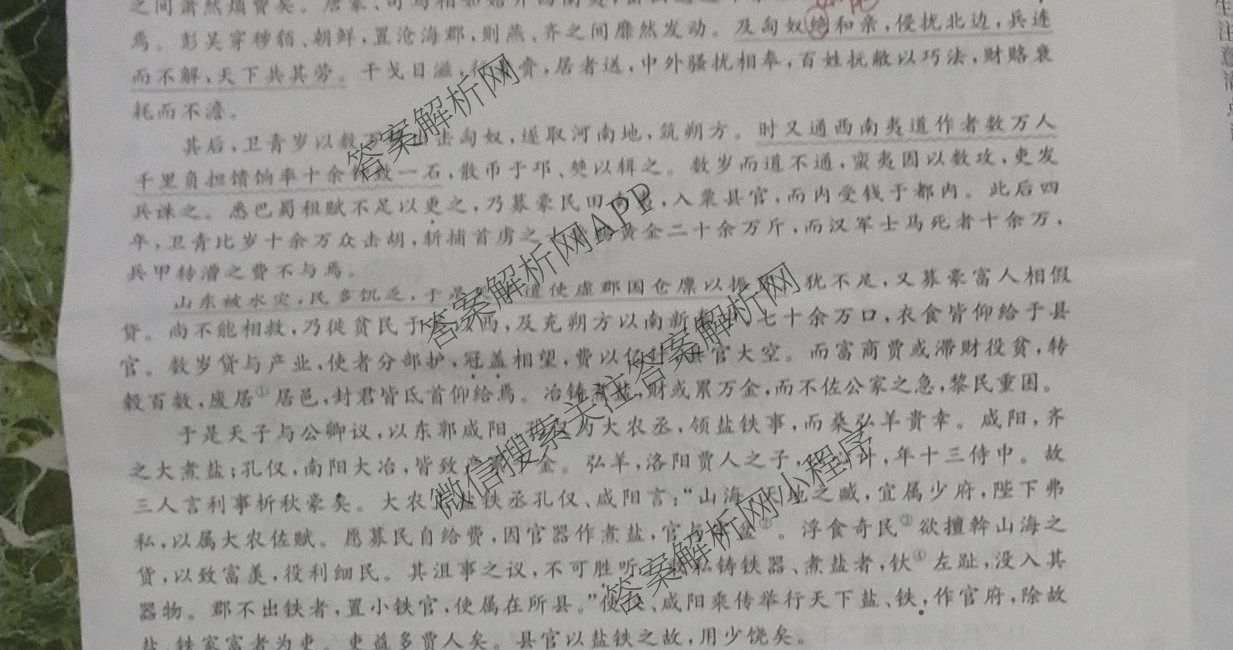 焉。彭吴穿秽貊、朝鲜，置沧海郡，则燕、齐之间靡然发动。及匈奴绝和亲，侵扰北边，兵连
而不解，天下共其劳。干戈日滋，行 赍，居者送，中外骚扰相奉，百姓抏敝以巧法，财赂衰
耗而不澹。
其后，卫青岁以数 击匈奴，遂取河南地，筑朔方。时又通西南夷道作者数万人
千里负担馈饷率十余 致一石，散币于邛、僰以辑之。数岁而道不通，蛮夷因以数攻，吏发
兵诛之。悉巴蜀租赋不足以更之，乃募豪民田 ，入粟县官，而内受钱于都内。此后四
年，卫青比岁十余万众击胡，斩捕首虏之 黄金二十余万斤，而汉军士马死者十余万，
兵甲转漕之费不与焉。
山东被水灾，民多饥乏，于是 遣使虚郡国仓廪以振 犹不足，又募豪富人相假
贷。尚不能相救，乃徙贫民于 西，及充朔方以南新 七十余万口，衣食皆仰给于县
官。数岁贷与产业，使者分部护，冠盖相望，费以亿 县官大空。而富商贾或滞财役贫，转
毂百数，废居①居邑，封君皆氐首仰给焉。冶铸煮盐，财或累万金，而不佐公家之急，黎民重困。
于是天子与公卿议，以东郭咸阳、孔仅为大农丞，领盐铁事，而桑弘羊贵幸。咸阳，齐
之大煮盐；孔仅，南阳大冶，皆致 金。弘羊，洛阳贾人之子， 计，年十三侍中。故
三人言利事析秋豪矣。大农 盐铁丞孔仅、咸阳言：“山海，天地之臧，宜属少府，陛下弗
私，以属大农佐赋。愿募民自给费，因官器作煮盐，官与牢盆②。浮食奇民③欲擅斡山海之
货，以致富羡，役利细民。其沮事之议，不可胜听。 私铸铁器、煮盐者，钛④左趾，没入其
器物。郡不出铁者，置小铁官，使属在所县。”使仅、咸阳乘传举行天下盐、铁，作官府，除故
盐、铁家富者为吏。吏益多贾人矣。县官以盐铁之故，用少饶矣。
答案解析网
答案解析网APP
微信搜索关注答案解析网
答案解析网小程序